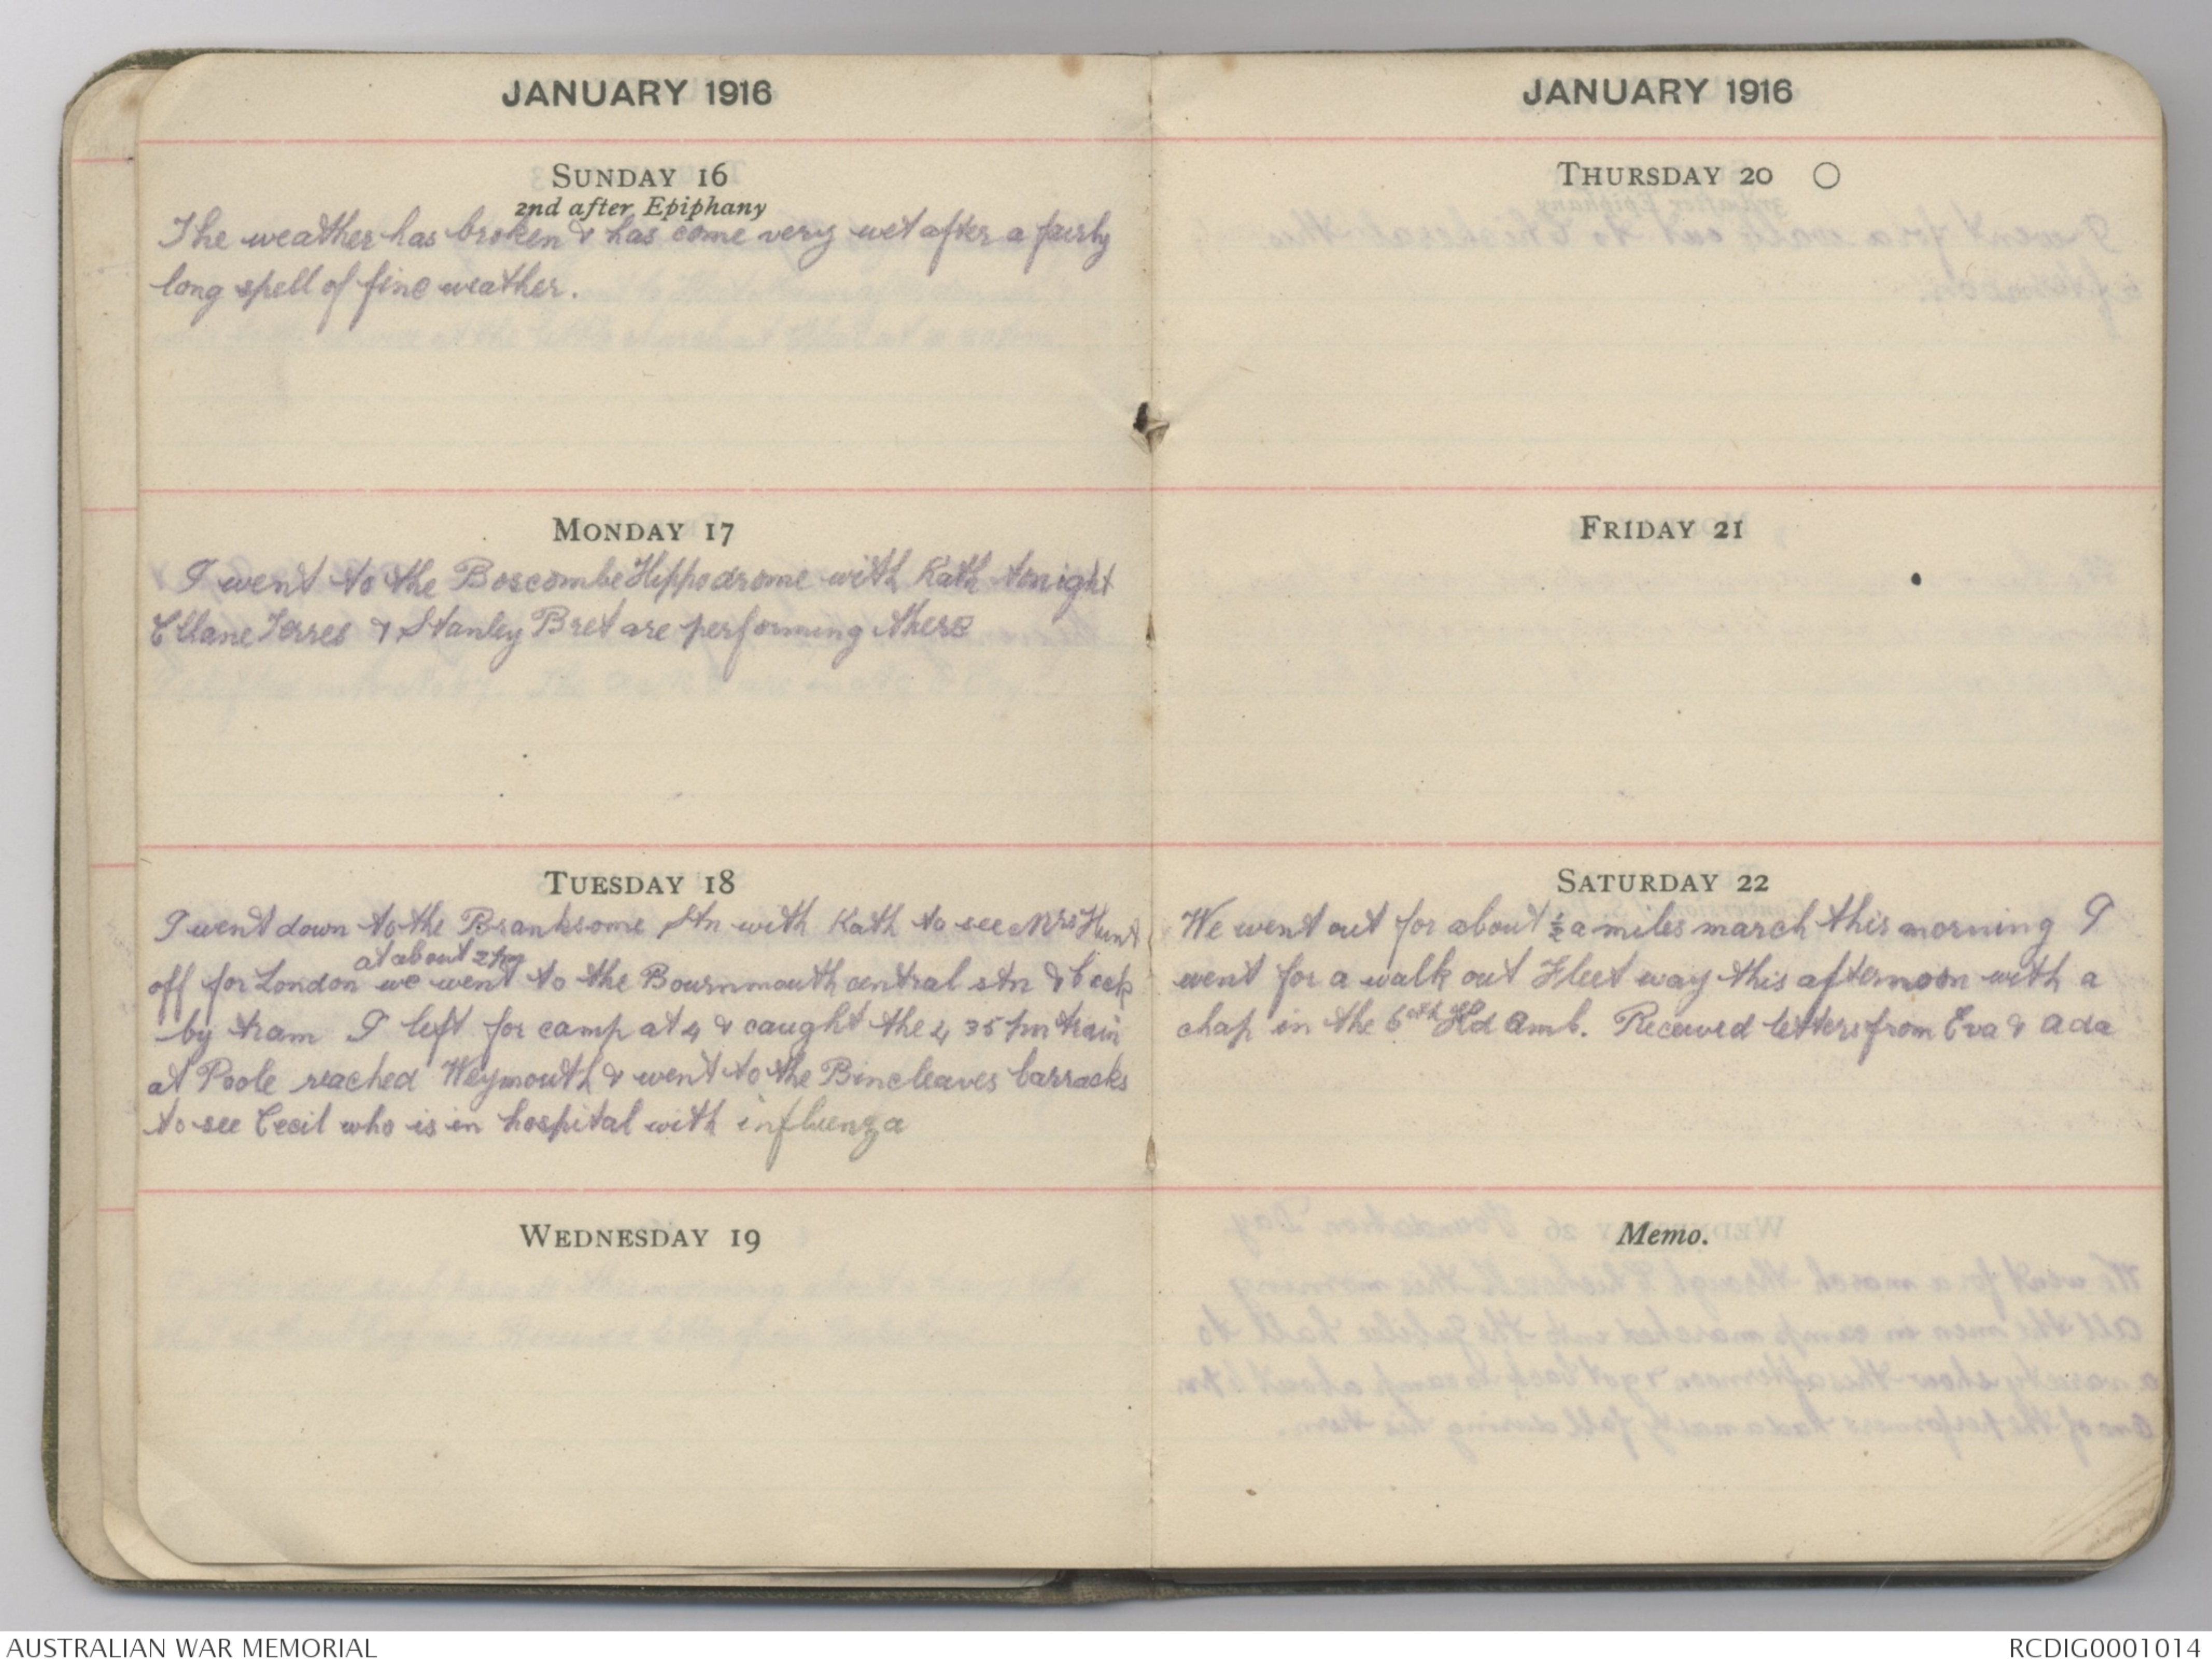 JANUARY 1916
SUNDAY 16
2nd after Epiphany
The weather has broken & has come very wet after a fairly
long spell of fine weather.
MONDAY 17
I went to the Boscombe Hippodrome with Kath tonight
Ellane Terres & Stanley Bret are performing there
TUESDAY 18
I went down to the Branksome Stn with Kath to see Mrs Hunt
at about 2 pm
off for London we went to the Bournmouth central stn & back
by tram I left for camp at 4 & caught the 4 35 pm train
at Poole reached Weymouth & went to the Bincleaves barracks
to see Cecil who is in hospital with influenza
WEDNESDAY 19
JANUARY 1916
THURSDAY 20
FRIDAY 21
SATURDAY 22
We went out for about ½ a miles march this morning I
went for a walk out Fleet way this afternoon with a
chap in the 6th Fld Amb. Received letters from Eva & Ada
Memo.
AUSTRALIAN WAR MEMORIAL
RCDIG0001014